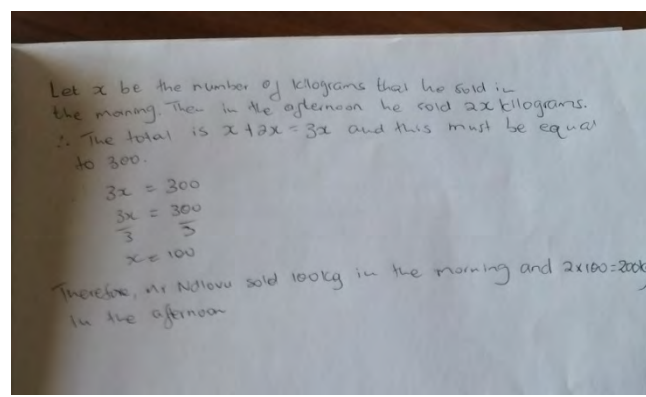 Let x be the number of kilograms that he sold in
the morning. Then in the afternoon he sold 2x kilograms.
∴ The total is x + 2x = 3x and this must be equal
to 300.
3x = 300
3x/3 = 300/3
x = 100
Therefore, Mr Ndlovu sold 100kg in the morning and 2x100=200k
in the afternoon